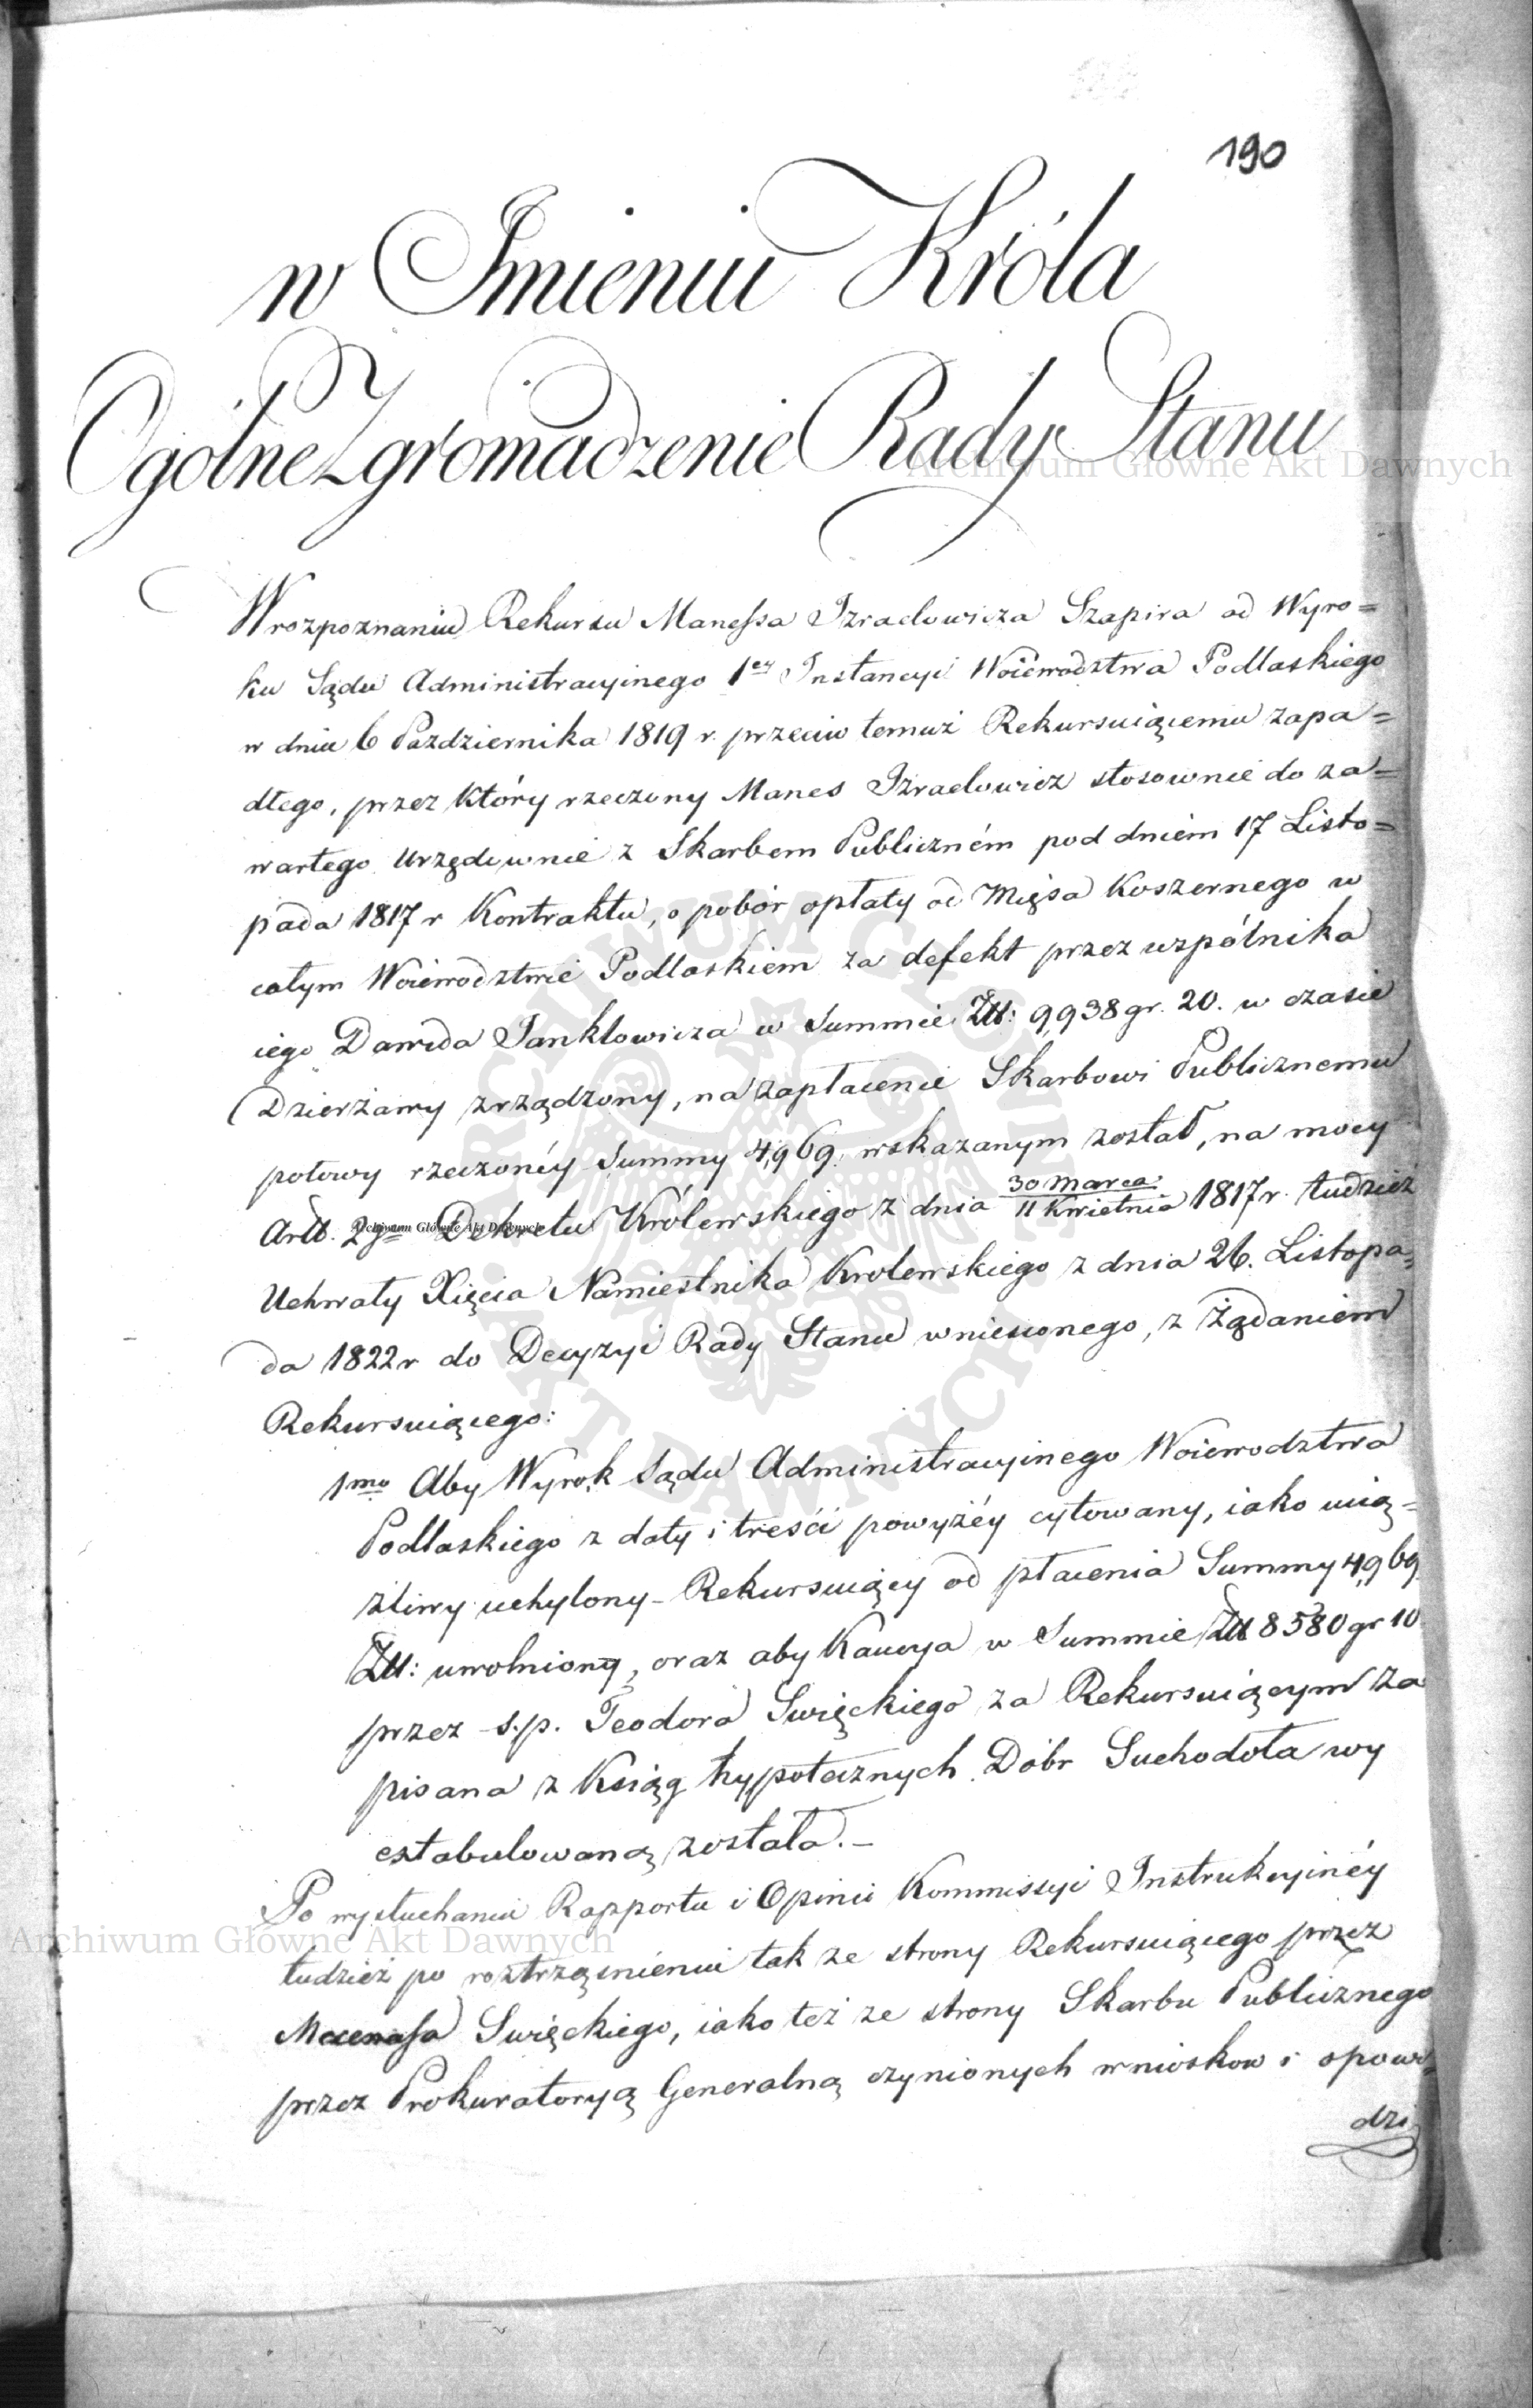 190
w Imieniu Króla
Ogólne Zgromadzenie Rady Stanu
W rozpoznaniu Rekursu Manessa Izraelowicza Szapira od Wyro=
ku Sądu Administracyinego 1ey Instancyi Woiewodztwa Podlaskiego
w dniu 6 Pazdziernika 1819 r. przeciw temuż Rekursuiącemu zapa=
dłego, przez który rzeczony Manes Izraelowicz stosownie do za=
wartego urzędownie z Skarbem Publiczném pod dniem 17 Listo=
pada 1817 r Kontraktu, o pobór opłaty od Mięsa Koszernego w
całym Woiewodztwie Podlaskiem za defekt przez wspólnika
iego Dawida Janklowicza w Summie Zł: 9,938 gr. 20. w czasie
Dzierżawy zrządzony, na zapłacenie Skarbowi Publicznemu
połowy rzeczonéy Summy 4,969. wskazanym został, na mocy
Artł. 2go Dekretu Królewskiego z dnia 30 Marca / 11 Kwietnia 1817 r. tudzież
Uchwały Xięcia Namiestnika Krolewskiego z dnia 26. Listopa=
da 1822 r do Decyzyi Rady Stanu wniesionego, z Żądaniem
Rekursuiącego:
1mo Aby Wyrok Sądu Administracyinego Woiewodztwa
Podlaskiego z daty i treści powyżéy cytowany, iako ucią=
żliwy uchylony - Rekursuiący od płacenia Summy 4,969
Zł: uwolniony, oraz aby Kaucya w Summie Zł 8580 gr 10
przez s.p. Teodora Swięckiego za Rekursuiącym za
pisana z Ksiąg hypotecznych Dóbr Suchodoła wy
extabulowaną została. -
Po wysłuchaniu Rapportu i Opinii Kommissyi Instrukcyinéy
tudzież po roztrząśnieniu tak ze strony Rekursuiącego przez
Mecenasa Swięckiego, iako też ze strony Skarbu Publicznego
przez Prokuratoryą Generalną czynionych wnioskow i opowi=
dzi
Archiwum Główne Akt Dawnych
Archiwum Główne Akt Dawnych
Archiwum Główne Akt Dawnych
ARCHIWUM GŁÓWNE AKT DAWNYCH